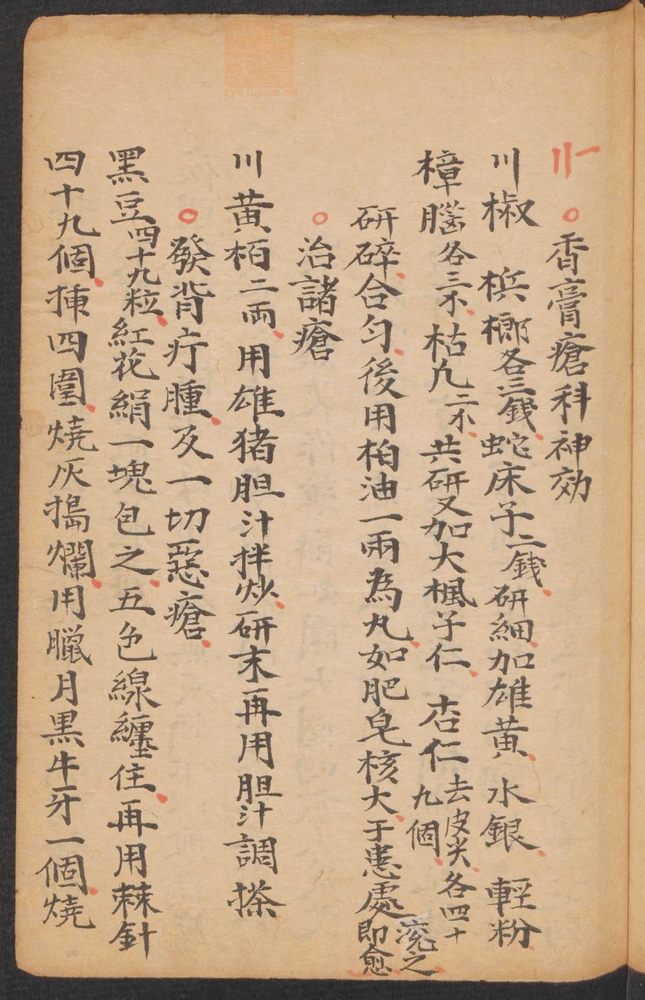 香膏瘡科神効
川椒 梹榔各三錢 蛇床子二錢 研細加雄黃 水銀 輕粉
樟腦各三不 枯凢二不 共研又加大楓子仁 杏仁去皮尖各四十九個
研碎合匀後用柏油一兩為丸如肥皂核大于患處滾之即愈
治諸瘡
川黃栢二兩用雄猪胆汁拌炒研末再用胆汁調搽
發背疔腫及一切惡瘡
黑豆四十九粒紅花絹一塊包之五色線纏住再用棘針
四十九個揷四圍燒灰搗爛用臘月黑牛牙一個燒